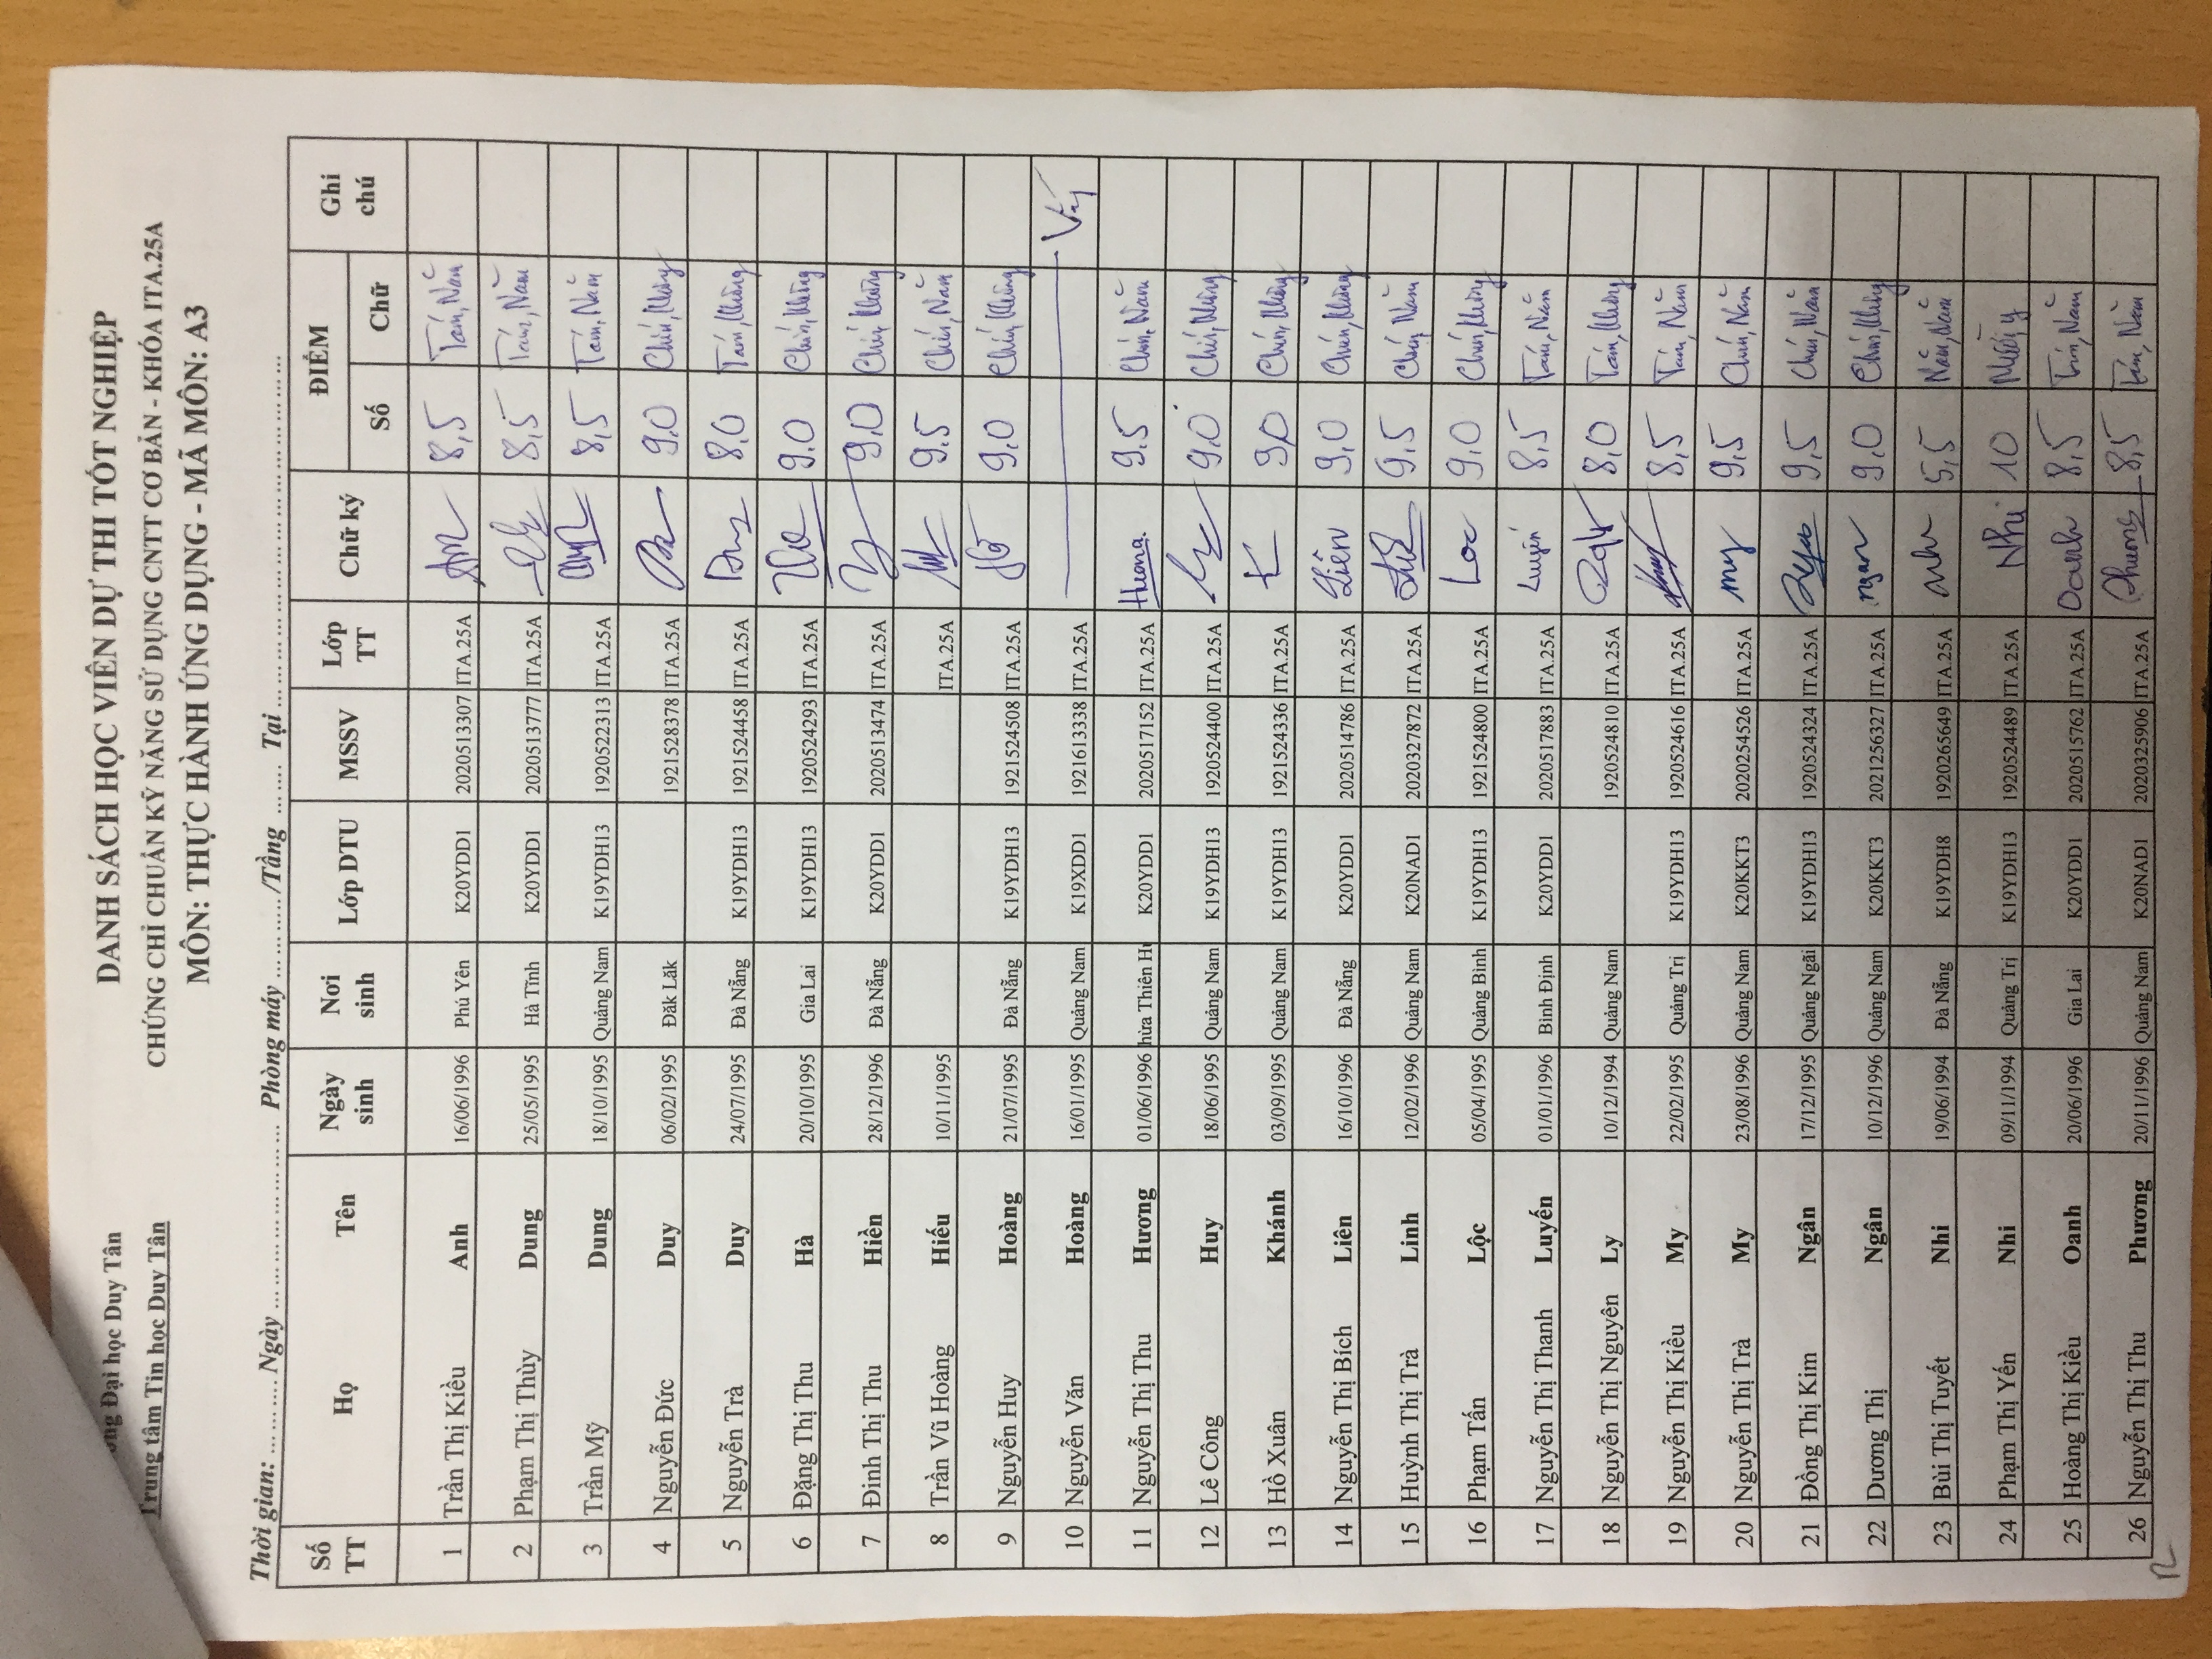 Đại học Duy Tân
Trung tâm Tin học Duy Tân
DANH SÁCH HỌC VIÊN DỰ THI TỐT NGHIỆP
CHỨNG CHỈ CHUẨN KỸ NĂNG SỬ DỤNG CNTT CƠ BẢN - KHÓA ITA.25A
MÔN: THỰC HÀNH ỨNG DỤNG - MÃ MÔN: A3
Thời gian: ... ... ... Ngày ... ... ... Phòng máy ... ... ... /Tầng ... ... Tại ... ... ...
Số TT Họ Tên Ngày sinh Nơi sinh Lớp DTU MSSV Lớp TT Chữ ký ĐIỂM Số Chữ Ghi chú
1 Trần Thị Kiều Anh 16/06/1996 Phú Yên K20YDD1 2020513307 ITA.25A 8,5 Tám, Năm
2 Phạm Thị Thùy Dung 25/03/1995 Hà Tĩnh K20YDD1 2020513777 ITA.25A 8,5 Tám, Năm
3 Trần Mỹ Dung 18/10/1995 Quảng Nam K19YDH13 1920522313 ITA.25A 8,5 Tám, Năm
4 Nguyễn Đức Duy 06/02/1995 Đăk Lăk 1921528378 ITA.25A 9.0 Chín, Không
5 Nguyễn Trà Duy 24/07/1995 Đà Nẵng K19YDH13 1921524458 ITA.25A Duy 8,0 Tám, Không
6 Đặng Thị Thu Hà 20/10/1995 Gia Lai K19YDH13 1920524293 ITA.25A 9.0 Chín, Không
7 Đinh Thị Thu Hiền 28/12/1996 Đà Nẵng K20YDD1 2020513474 ITA.25A 9.0 Chín, Không
8 Trần Vũ Hoàng Hiếu 10/11/1995 ITA.25A 9,5 Chín, Năm
9 Nguyễn Huy Hoàng 21/07/1995 Đà Nẵng K19YDH13 1921524508 ITA.25A 9.0 Chín, Không
10 Nguyễn Văn Hoàng 16/01/1995 Quảng Nam K19XDD1 1921613338 ITA.25A Vắng
11 Nguyễn Thị Thu Hương 01/06/1996 hừa Thiên Hu K20YDD1 2020517152 ITA.25A Hương. 9,5 Chín, Năm
12 Lê Công Huy 18/06/1995 Quảng Nam K19YDH13 1920524400 ITA.25A 9.0 Chín, Không
13 Hồ Xuân Khánh 03/09/1995 Quảng Nam K19YDH13 1921524336 ITA.25A K 9.0 Chín, Không
14 Nguyễn Thị Bích Liên 16/10/1996 Đà Nẵng K20YDD1 2020514786 ITA.25A Liên 9,0 Chín, Không
15 Huỳnh Thị Trà Linh 12/02/1996 Quảng Nam K20NAD1 2020327872 ITA.25A 9,5 Chín, Năm
16 Phạm Tấn Lộc 05/04/1995 Quảng Bình K19YDH13 1921524800 ITA.25A Loc 9.0 Chín, Không
17 Nguyễn Thị Thanh Luyến 01/01/1996 Bình Định K20YDD1 2020517883 ITA.25A Luyến 8,5 Tám, Năm
18 Nguyễn Thị Nguyên Ly 10/12/1994 Quảng Nam 1920524810 ITA.25A 8,0 Tám, Không
19 Nguyễn Thị Kiều My 22/02/1995 Quảng Trị K19YDH13 1920524616 ITA.25A 8,5 Tám, Năm
20 Nguyễn Thị Trà My 23/08/1996 Quảng Nam K20KKT3 2020254526 ITA.25A my 9,5 Chín, Năm
21 Đồng Thị Kim Ngân 17/12/1995 Quảng Ngãi K19YDH13 1920524324 ITA.25A 9,5 Chín, Năm
22 Dương Thị Ngân 10/12/1996 Quảng Nam K20KKT3 2021256327 ITA.25A ngan 9.0 Chín, Không
23 Bùi Thị Tuyết Nhi 19/06/1994 Đà Nẵng K19YDH8 1920265649 ITA.25A 5,5 Năm, Năm
24 Phạm Thị Yến Nhi 09/11/1994 Quảng Trị K19YDH13 1920524489 ITA.25A Nhi 10 Mười y
25 Hoàng Thị Kiều Oanh 20/06/1996 Gia Lai K20YDD1 2020515762 ITA.25A Oanh 8,5 Tám, Năm
26 Nguyễn Thị Thu Phương 20/11/1996 Quảng Nam K20NAD1 2020325906 ITA.25A Phương 8,5 Tám, Năm